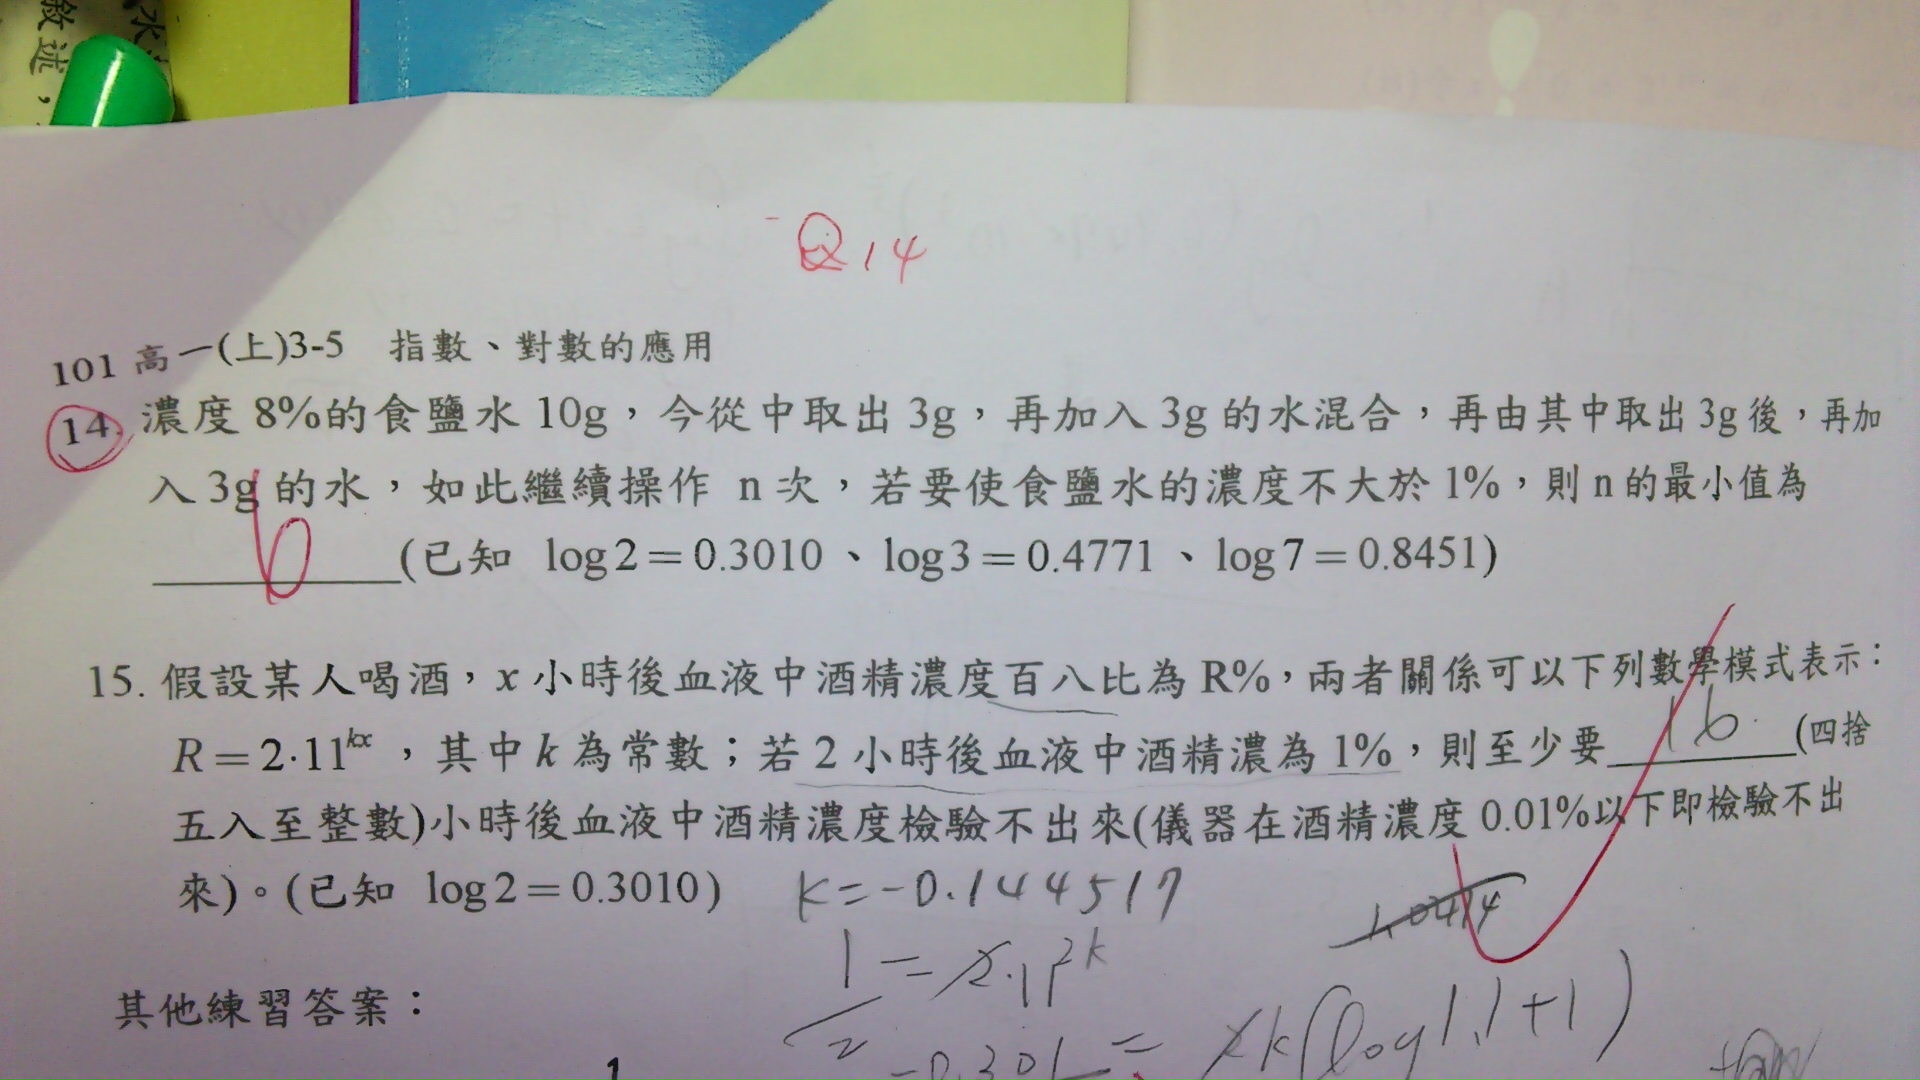 敘述，
Q14
101 高一(上)3-5 指數、對數的應用
14. 濃度 8%的食鹽水 10g，今從中取出 3g，再加入 3g 的水混合，再由其中取出 3g 後，再加
入 3g 的水，如此繼續操作 n 次，若要使食鹽水的濃度不大於 1%，則 n 的最小值為
6 (已知 log2=0.3010、log3=0.4771、log7=0.8451)
15. 假設某人喝酒，x 小時後血液中酒精濃度百八比為 R%，兩者關係可以下列數學模式表示：
R=2·11^{kx}，其中 k 為常數；若 2 小時後血液中酒精濃為 1%，則至少要 16 (四捨
五入至整數)小時後血液中酒精濃度檢驗不出來(儀器在酒精濃度 0.01%以下即檢驗不出
來)。(已知 log2=0.3010) k=-0.144517
1.0414
1/2 = 2·11^{2k}
-0.301 = 2k(log1.1+1)
其他練習答案：
1